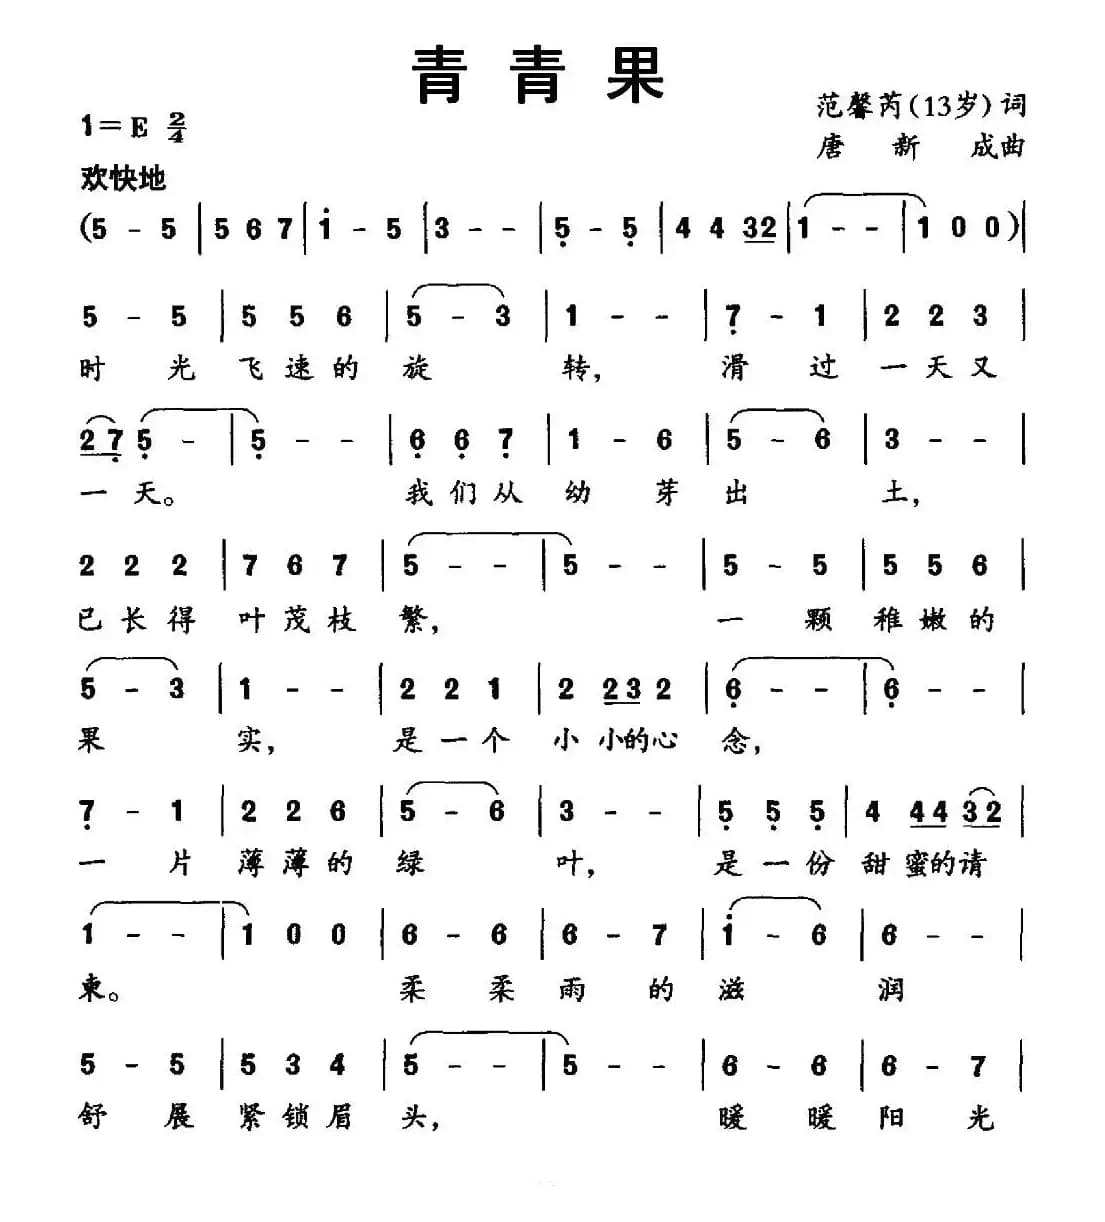 青青果
范馨芮(13岁)词
1=E 2/4
唐新成曲
欢快地
(5 - 5 | 5 6 7 | i - 5 | 3 - - | 5̣ - 5̣ | 4 4 32 | 1 - - | 1 0 0)|
5 - 5 | 5 5 6 | 5 - 3 | 1 - - | 7̣ - 1 | 2 2 3 |
时光飞速的旋转,滑过一天又
2 7̣ 5̣ - | 5̣ - - | 6̣ 6̣ 7̣ | 1 - 6 | 5 - 6 | 3 - - |
一天。我们从幼芽出土,
2 2 2 | 7 6 7 | 5 - - | 5 - - | 5 - 5 | 5 5 6 |
已长得叶茂枝繁,一颗稚嫩的
5 - 3 | 1 - - | 2 2 1 | 2 23 2 | 6̣ - - | 6̣ - - |
果实,是一个小小的心念,
7̣ - 1 | 2 2 6 | 5 - 6 | 3 - - | 5̣ 5̣ 5̣ | 4 44 32 |
一片薄薄的绿叶,是一份甜蜜的请
1 - - | 1 0 0 | 6 - 6 | 6 - 7 | i - 6 | 6 - - |
柬。柔柔雨的滋润
5 - 5 | 5 3 4 | 5 - - | 5 - - | 6 - 6 | 6 - 7 |
舒展紧锁眉头,暖暖阳光